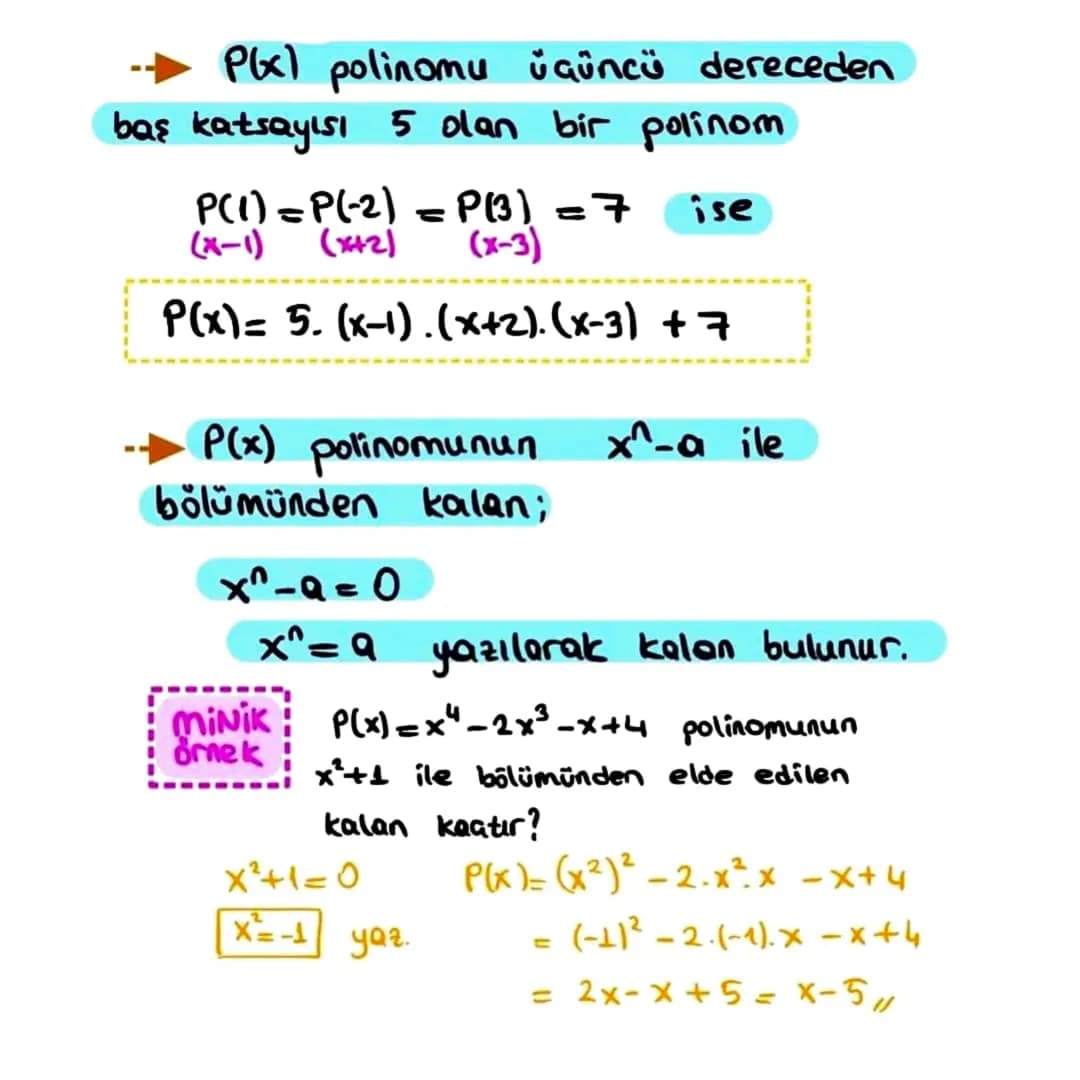 P(x) polinomu üçüncü dereceden
baş katsayısı 5 olan bir polinom
P(1) = P(-2) = P(3) = 7 ise
(x-1) (x+2) (x-3)
P(x) = 5. (x-1) . (x+2). (x-3) + 7
P(x) polinomunun xⁿ-a ile
bölümünden kalan;
xⁿ-a = 0
xⁿ = a yazılarak kalan bulunur.
MiNiK
örnek
P(x) = x⁴ - 2x³ - x + 4 polinomunun
x²+1 ile bölümünden elde edilen
kalan kaçtır?
x²+1 = 0
x² = -1 yaz.
P(x) = (x²)² - 2.x².x - x + 4
= (-1)² - 2.(-1).x - x + 4
= 2x - x + 5 = x - 5 //